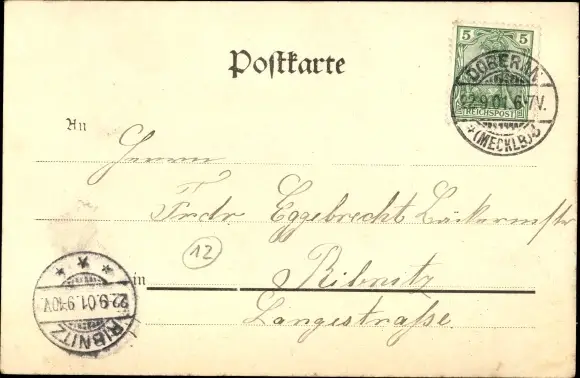 5 5
REICHSPOST
DOBERAN
22.9.01.6-7V.
(MECKLB)
Postkarte
An
Herrn
Frdr. Eggebrecht Bäckermstr
12
in Ribnitz
Langestraße.
RIBNITZ
22.9.01.9-10V.